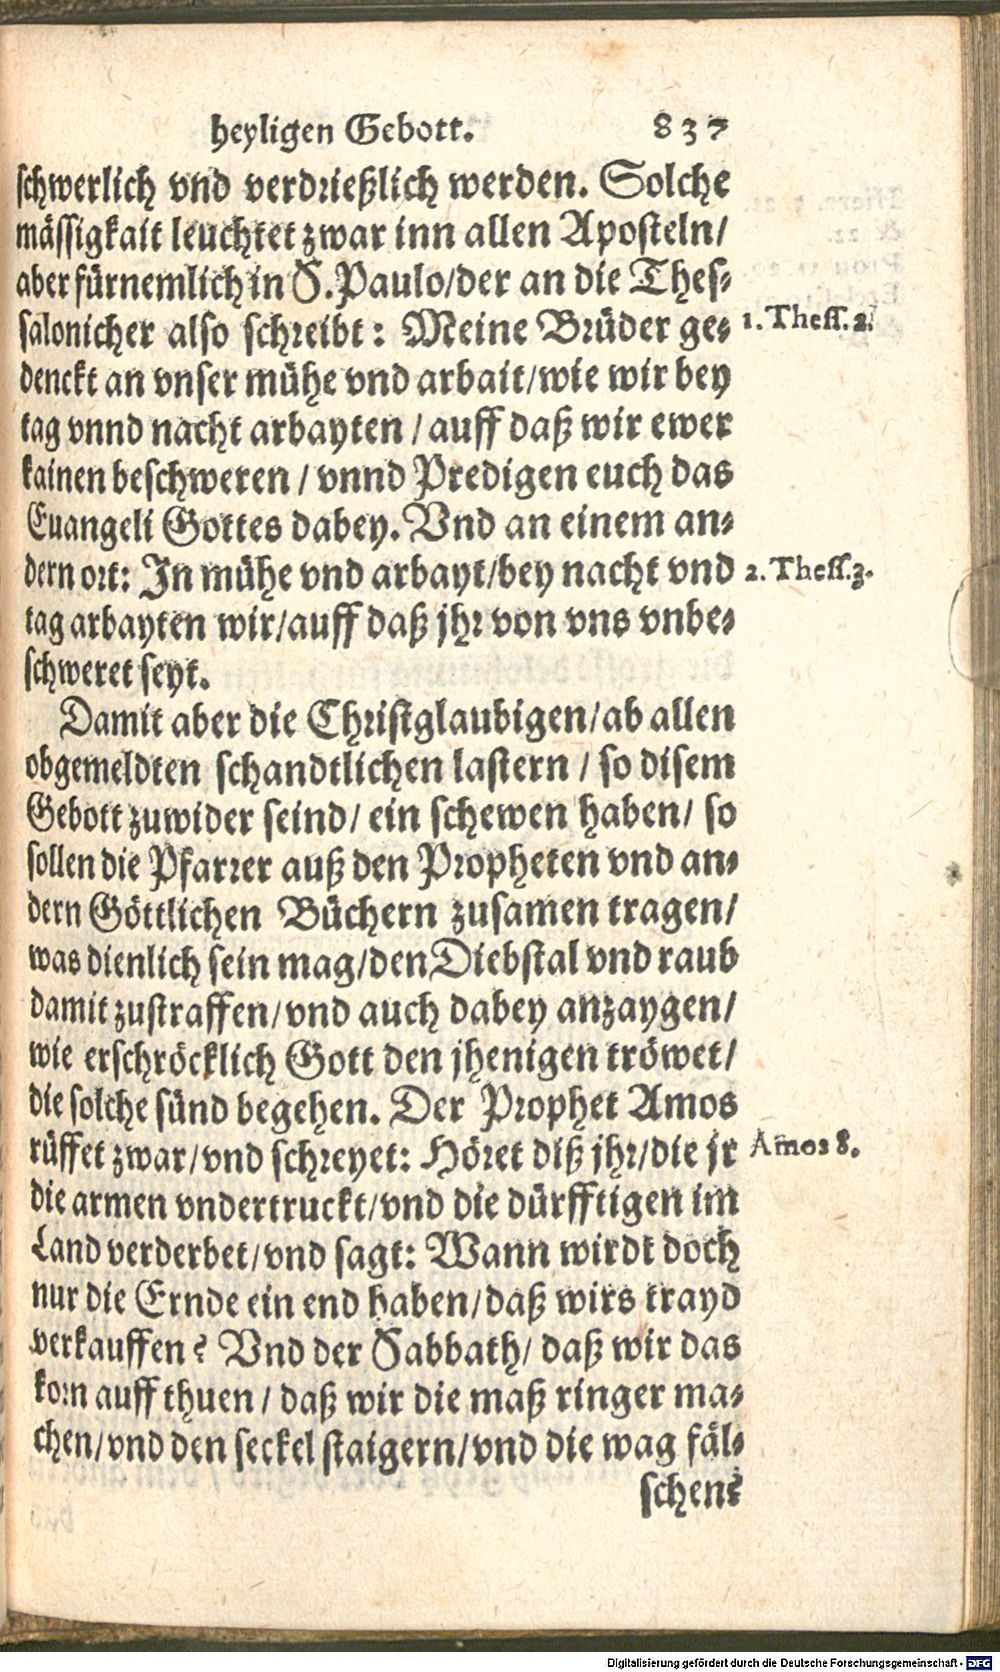 heyligen Gebott. 837
schwerlich vnd verdrießlich werden. Solche
mässigkait leuchtet zwar inn allen Aposteln/
aber fürnemlich in S. Paulo/der an die Thes-
salonicher also schreibt: Meine Brüder ge- 1. Thess. 2.
denckt an vnser mühe vnd arbait/wie wir bey
tag vnnd nacht arbayten / auff daß wir ewer
kainen beschweren / vnnd Predigen euch das
Euangeli Gottes dabey. Vnd an einem an-
dern ort: In mühe vnd arbayt/bey nacht vnd 2. Thess. 3.
tag arbayten wir/auff daß jhr von vns vnbe-
schweret seyt.
Damit aber die Christglaubigen/ab allen
obgemeldten schandtlichen lastern / so disem
Gebott zuwider seind/ ein schewen haben/ so
sollen die Pfarrer auß den Propheten vnd an-
dern Göttlichen Büchern zusamen tragen/
was dienlich sein mag/den Diebstal vnd raub
damit zustraffen/vnd auch dabey anzaygen/
wie erschröcklich Gott den jhenigen tröwet/
die solche sünd begehen. Der Prophet Amos
rüffet zwar/vnd schreyet: Höret diß jhr/die jr Amos 8.
die armen vndertruckt/vnd die dürfftigen im
Land verderbet/vnd sagt: Wann wirdt doch
nur die Ernde ein end haben/daß wirs trayd
verkauffen? Vnd der Sabbath/ daß wir das
korn auff thuen / daß wir die maß ringer ma-
chen/vnd den seckel staigern/vnd die wag fäl-
schen?
Digitalisierung gefördert durch die Deutsche Forschungsgemeinschaft - DFG